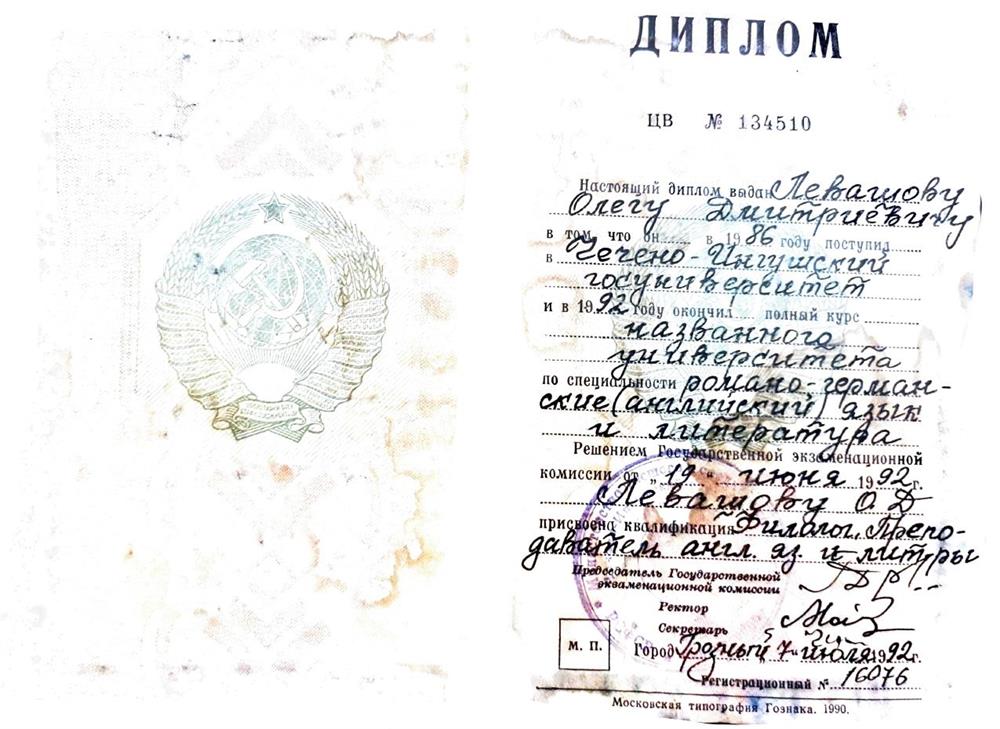 ДИПЛОМ
ЦВ № 134510
Настоящий диплом выдан Левашову
Олегу Дмитриевичу
в том, что он...... в 1986 году поступил
в Чечено-Ингушский
госуниверситет
и в 1992 году окончил полный курс
названного
университета
по специальности романо-герман-
ские (английский) язык
и литература
Решением Государственной экзаменационной
комиссии от „19" июня 1992 г.
Левашову О Д
присвоена квалификация Филолог, Препо-
даватель англ. яз. и литры
Председатель Государственной
экзаменационной комиссии
Ректор
Секретарь
М. П.
Город Грозный „7" июля 1992 г.
Регистрационный № 16076
Московская типография Гознака. 1990.